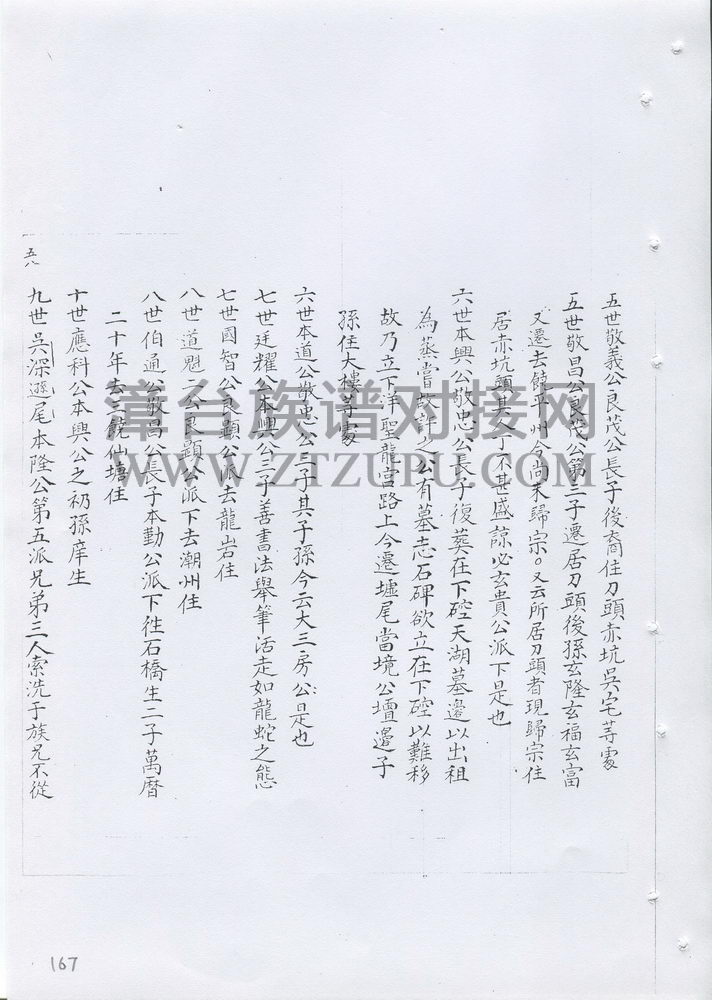 五世敬義公良茂公長子後裔住刀頭赤坑吳宅等處
五世敬昌公良茂公第三子遷居刀頭後孫玄隆玄福玄富
又遷去饒平州今尚未歸宗。又云所居刀頭者現歸宗住
居赤坑頭其丁不甚盛諒必玄貴公派下是也
六世本興公敬忠公長子復葬在下硿天湖墓邊以出租
為蒸嘗故許之公有墓志石碑欲立在下硿以難移
故乃立下洋聖龍宮路上今遷墟尾當境公壇邊子
孫住大樓等處
六世本道公敬忠公三子其子孫今云大三房公是也
七世廷耀公本興公三子善書法舉筆活走如龍蛇之態
七世國智公良顯公派去龍岩住
八世道魁二公良顯公派下去潮州住
八世伯通公敬昌公長子本勤公派下徃石橋生二子萬曆
二十年去三饒仙塘住
十世應科公本興公之礽孫庠生
九世吳深遜尾本隆公第五派兄弟三人索洗于族兄不從
五八
漳台族谱对接网
WWW.ZTZUPU.COM
167